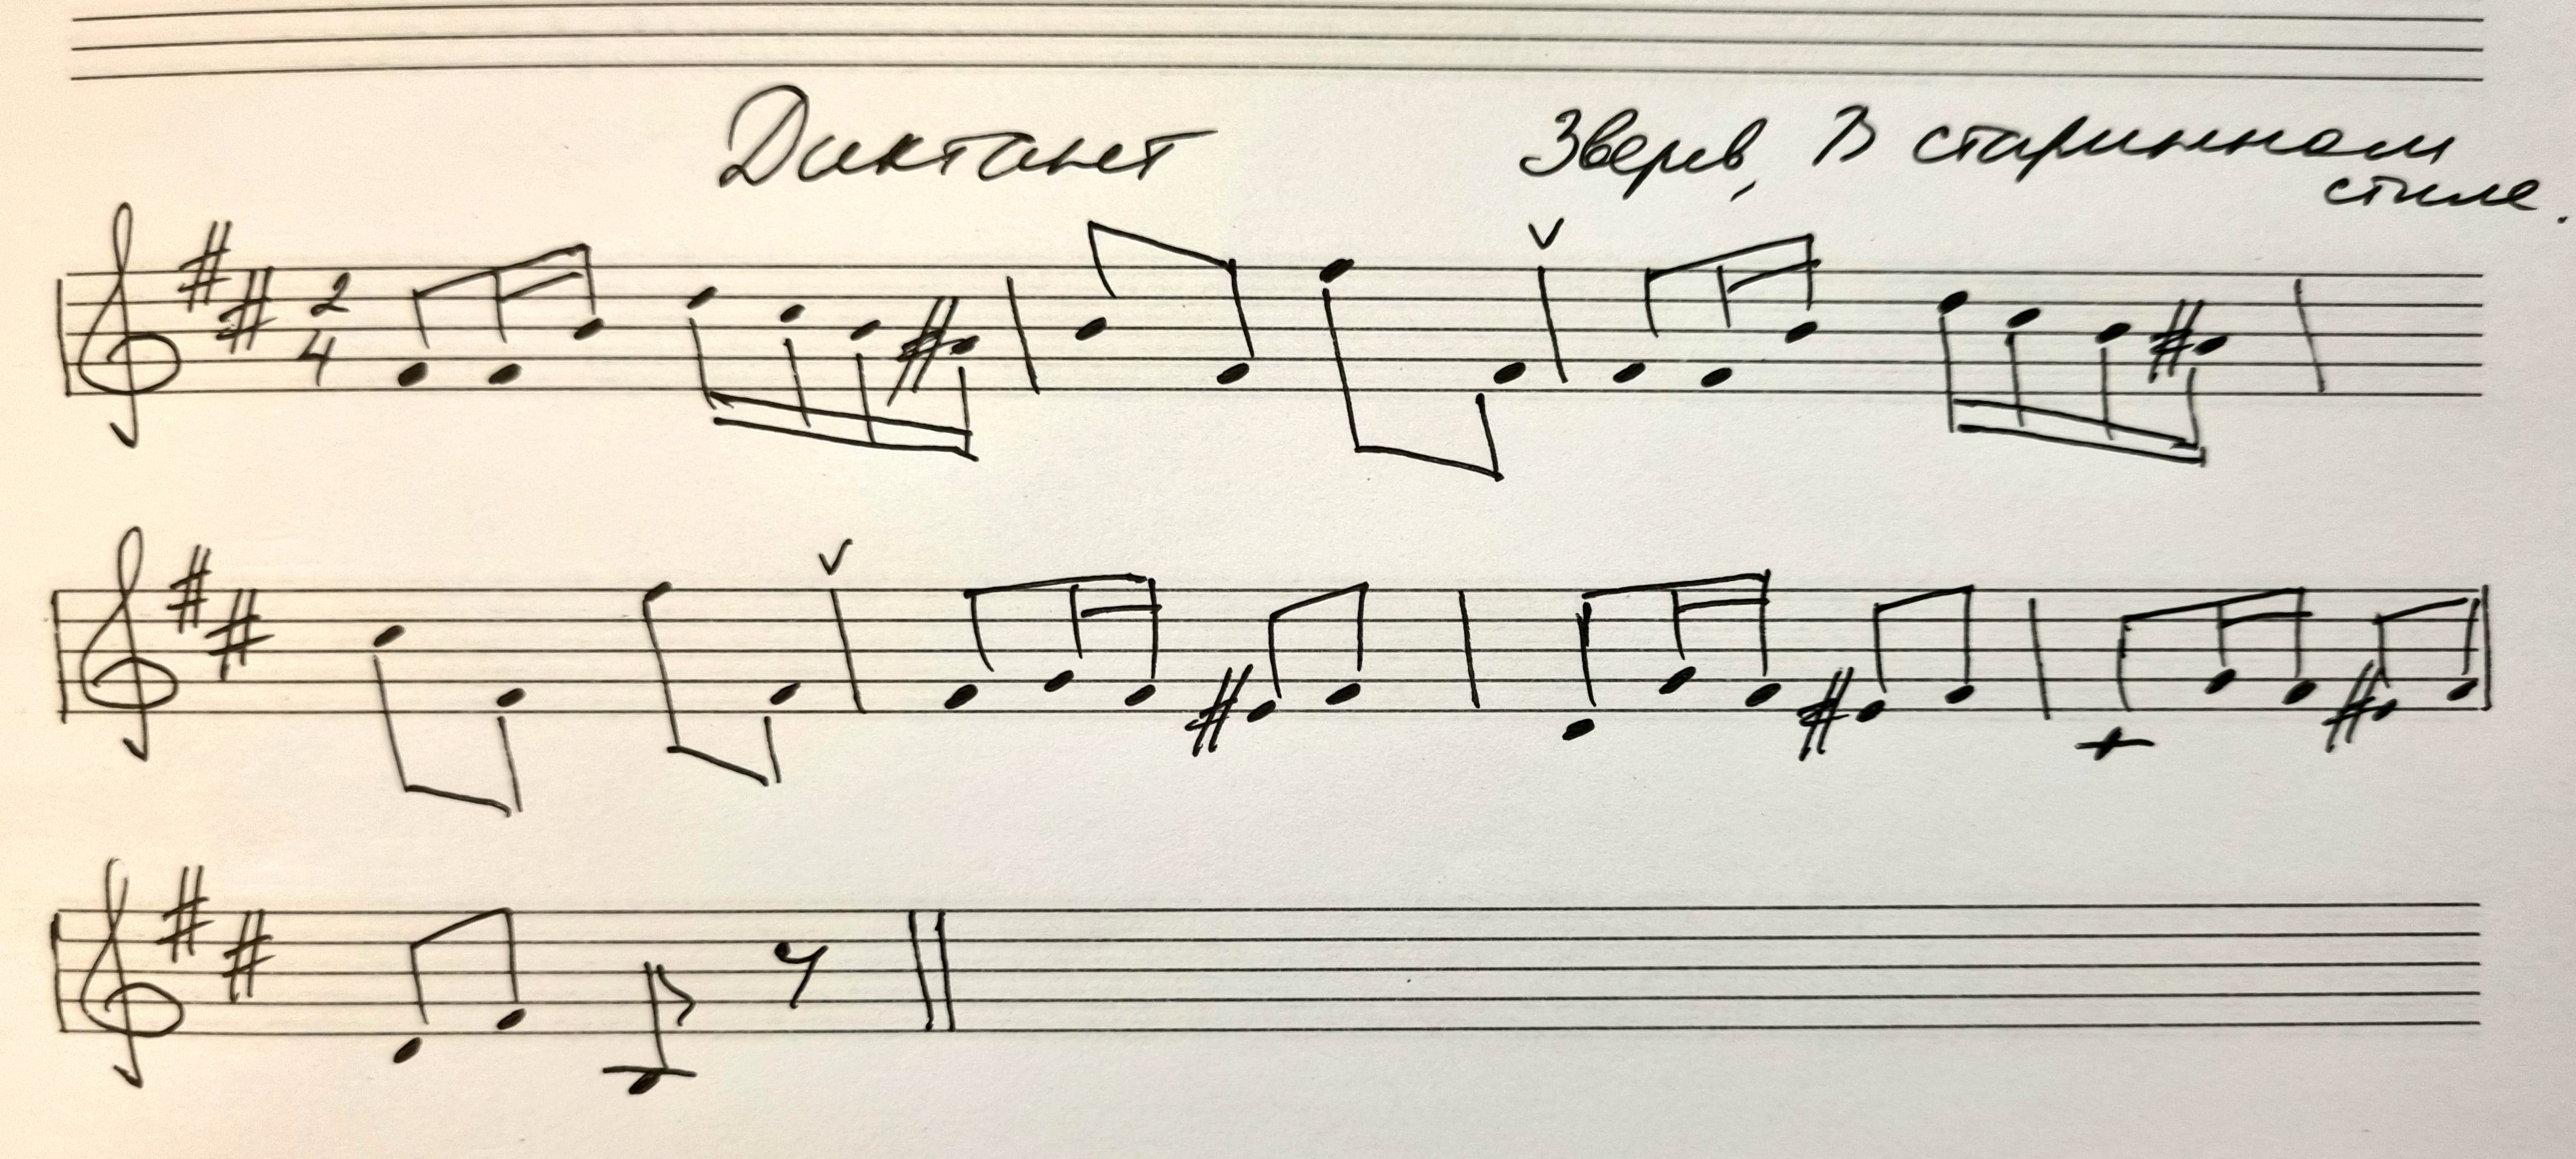 Диктант Зверев, В старинном
стиле.
2
4